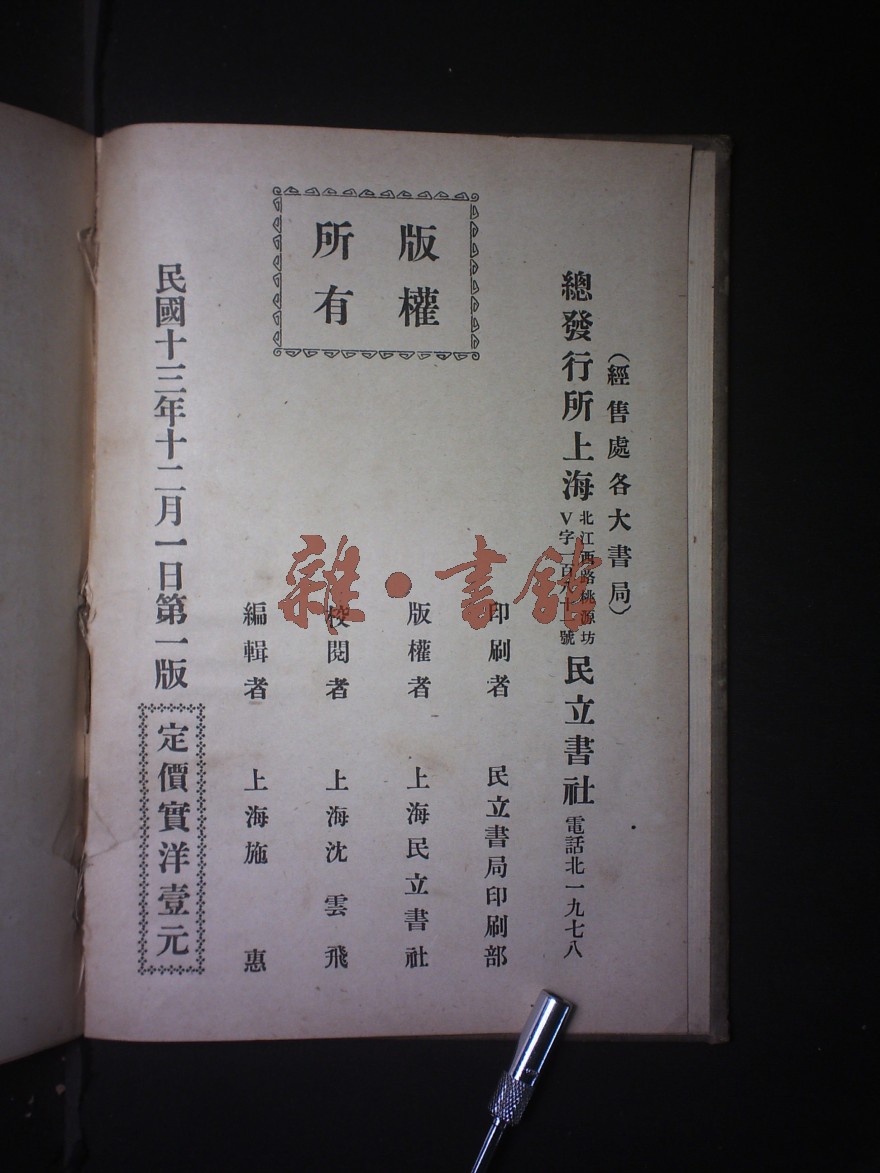 （經售處各大書局）
總發行所上海
北江西路桃源坊
V字一百九十一號
民立書社 電話北一九七八
印刷者 民立書局印刷部
版權者 上海民立書社
校閱者 上海沈雲飛
編輯者 上海施惠
版權
所有
民國十三年十二月一日第一版
定價實洋壹元
雜·書館